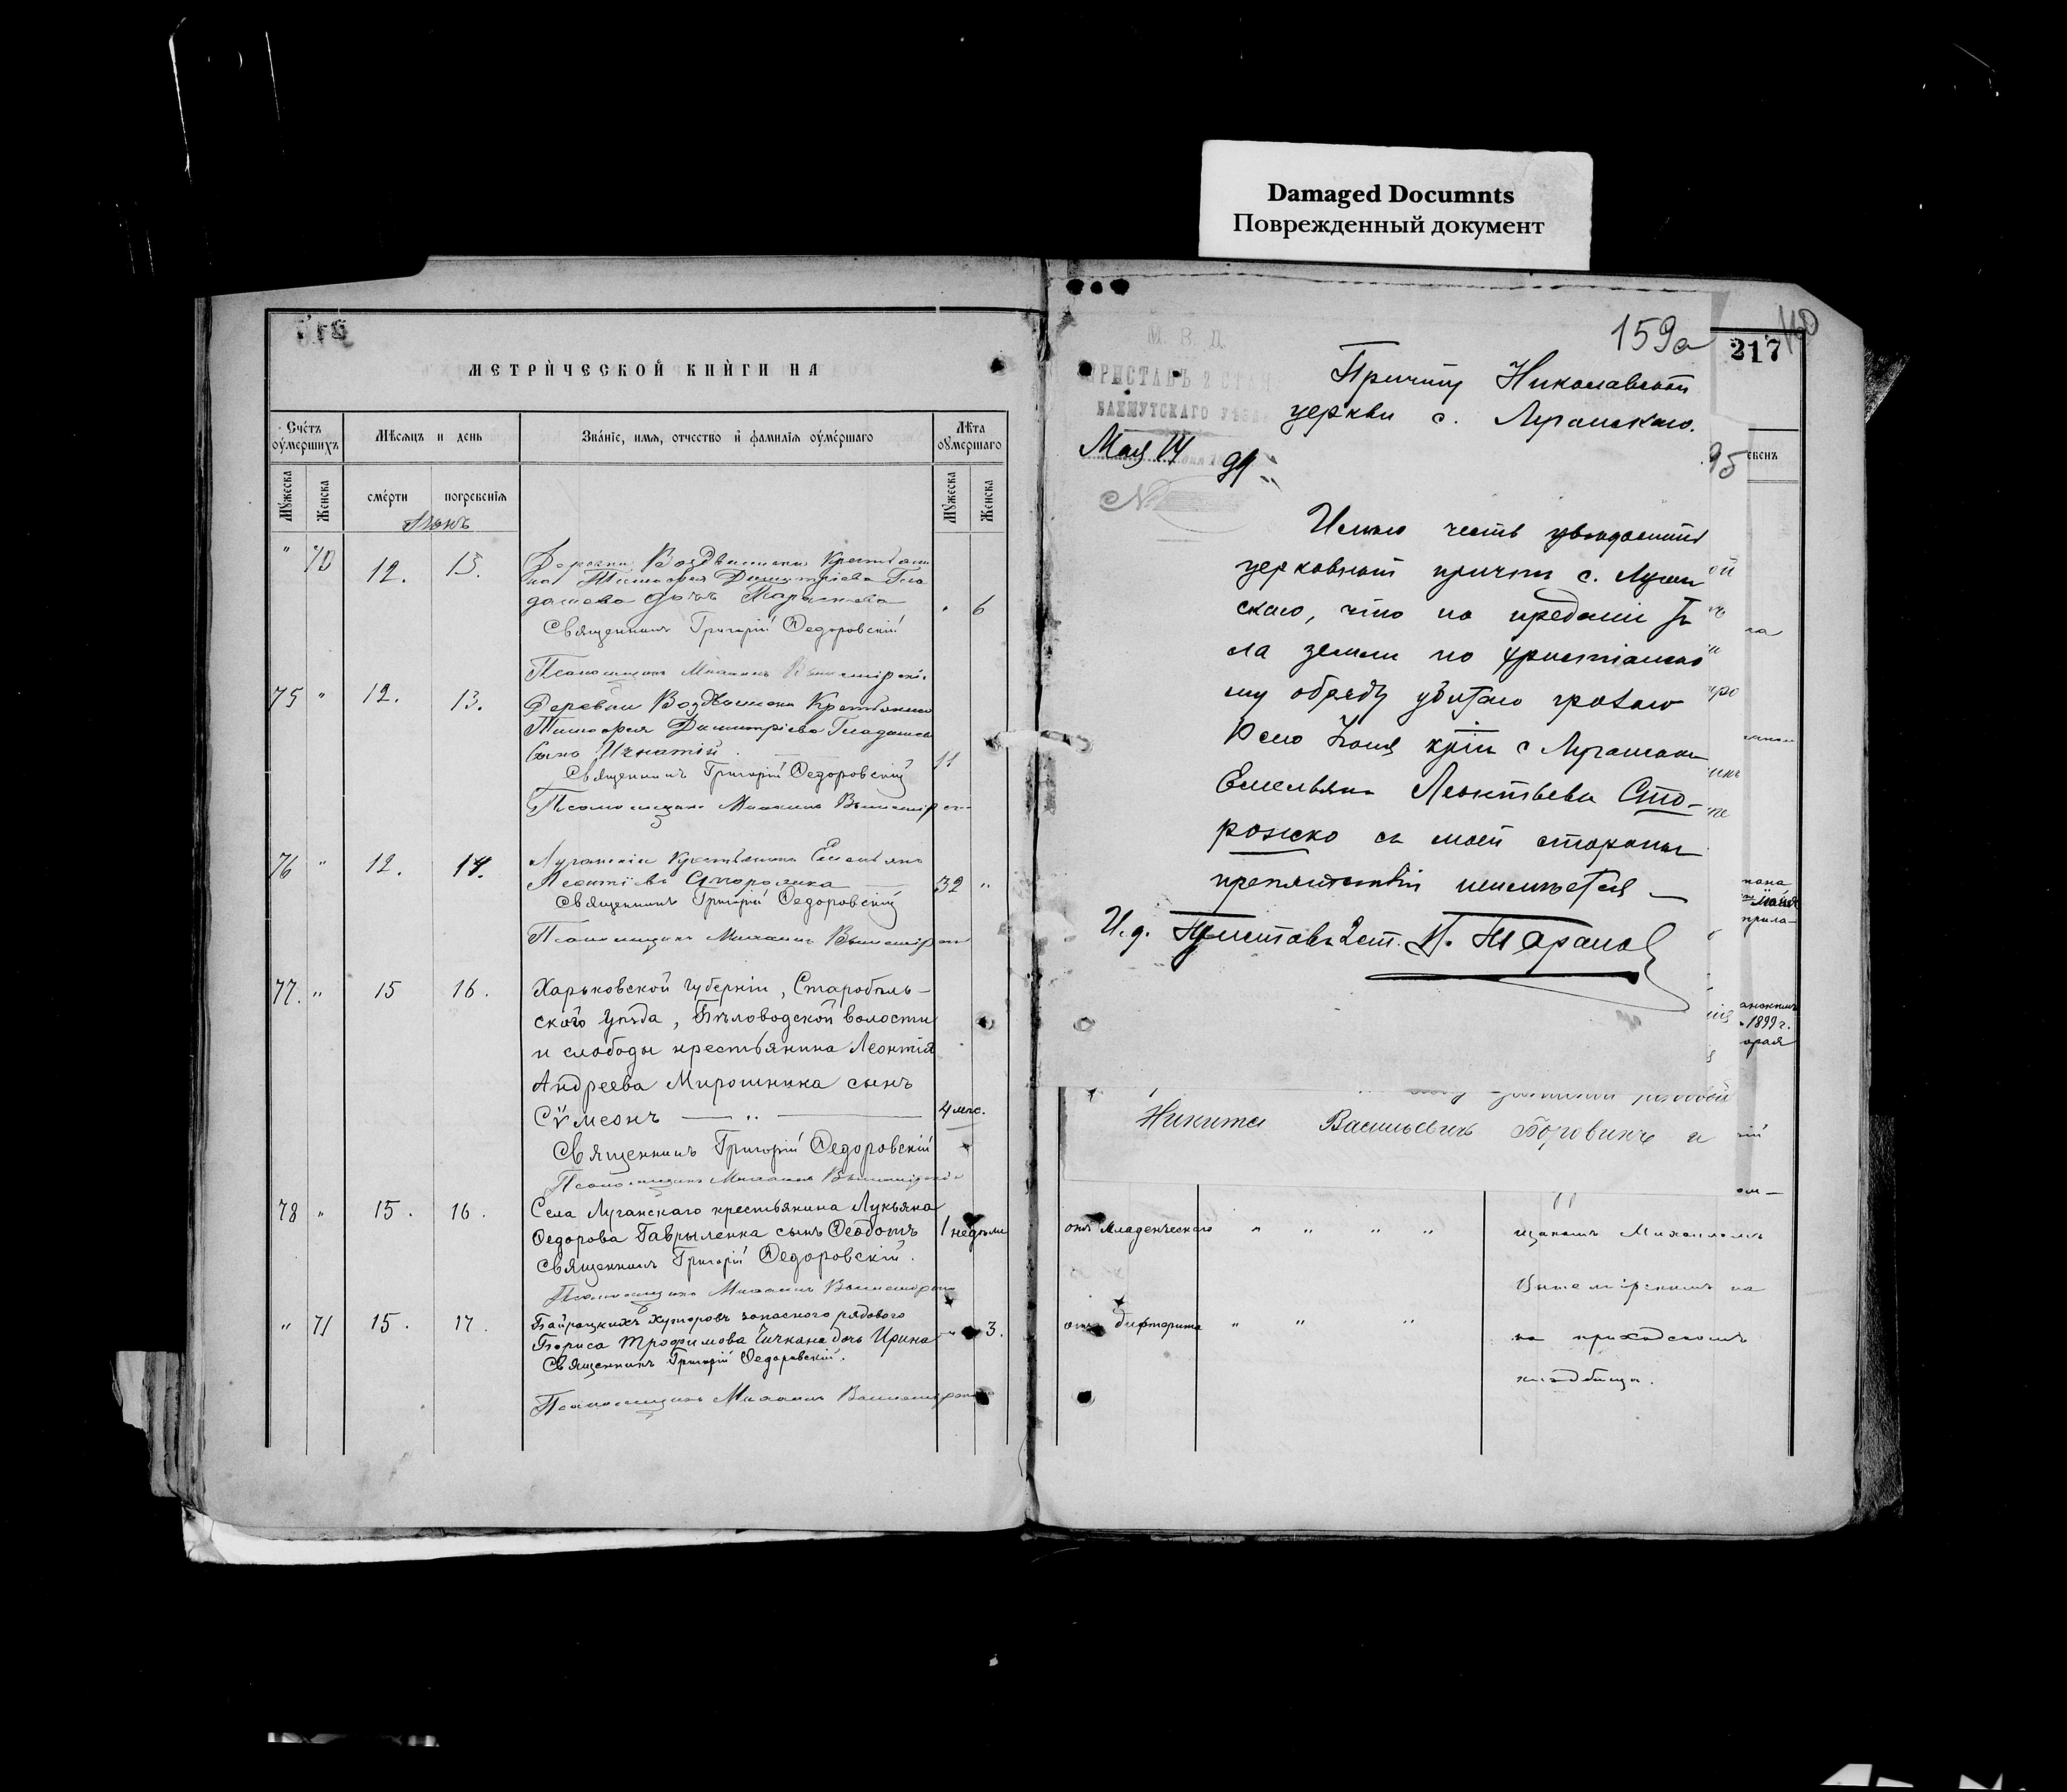 Damaged Documnts
Поврежденный документ
МЕТРИ́ЧЕСКОЙ КНИ́ГИ НА
Сче́тъ оу҆ме́ршихъ
Мѣ́сяцъ и день
Зва́нїе, имя, отчество и҆ фамилїя оу҆ме́ршаго
Лѣ́та оу҆ме́ршаго
Му́жеска
Же́нска
сме́рти
погребе́нїя
Му́жеска
Же́нска
" 70 12. 13. Деревни Воздвиженки Крестьяни
на Тимофея Димитріева Гла
дашева дочь
" 6
Священникъ Григорій Ѳедоровскій
Псаломщикъ Михаилъ
75 " 12. 13. Деревни Воздвиженки Крестьянина
Тимофея Димитріева Гладашева
сынъ Игнатій
11
Священникъ Григорій Ѳедоровскій
Псаломщикъ Михаилъ
76 " 12. 14. Луганскій Крестьянинъ Емельянъ
Леонтіевъ Сторожка
32 "
Священникъ Григорій Ѳедоровскій
Псаломщикъ Михаилъ
77. " 15 16. Харьковской губерніи, Старобѣль-
скаго уѣзда, Бѣловодской волости
и слободы крестьянина Леонтія
Андреева Мирошника сынъ
Сѵмеонъ — " —
4 мѣс.
Священникъ Григорій Ѳедоровскій
Псаломщикъ Михаилъ
78 " 15. 16. Села Луганскаго крестьянина Лукьяна
Ѳедорова Гаврыленка сынъ Ѳеодотъ 1 недѣли
Священникъ Григорій Ѳедоровскій.
Псаломщикъ Михаилъ
" 71 15. 17. Байрацкихъ хуторовъ запаснаго рядового
Бориса Трофимова Чичкана дочь Ирина " 3.
Священникъ Григорій Ѳедоровскій.
Псаломщикъ Михаилъ
159а
217
М. В. Д.
ПРИСТАВЪ 2 СТАНА
БАХМУТСКАГО УѢЗДА
Мая 14 99
№
Причту Николаевской
церкви с. Луганскаго.
95
Имѣю честь увѣдомить
церковный причтъ с. Луган
скаго, что на преданіе тѣ
ла земли по христіанско
му обряду убитаго грозою
кр‑на с Луганскаго
Емельяна Леонтьева Сто-
рожко съ моей стороны
препятствій неимѣется —
И. д. Пристава 2 ст.
1899 г.
Никита Васильевичъ Боровикъ и
отъ Младенческаго " " " "
щикомъ Михаиломъ
на
отъ дифтерита " " "
на приходскомъ
кладбищѣ.